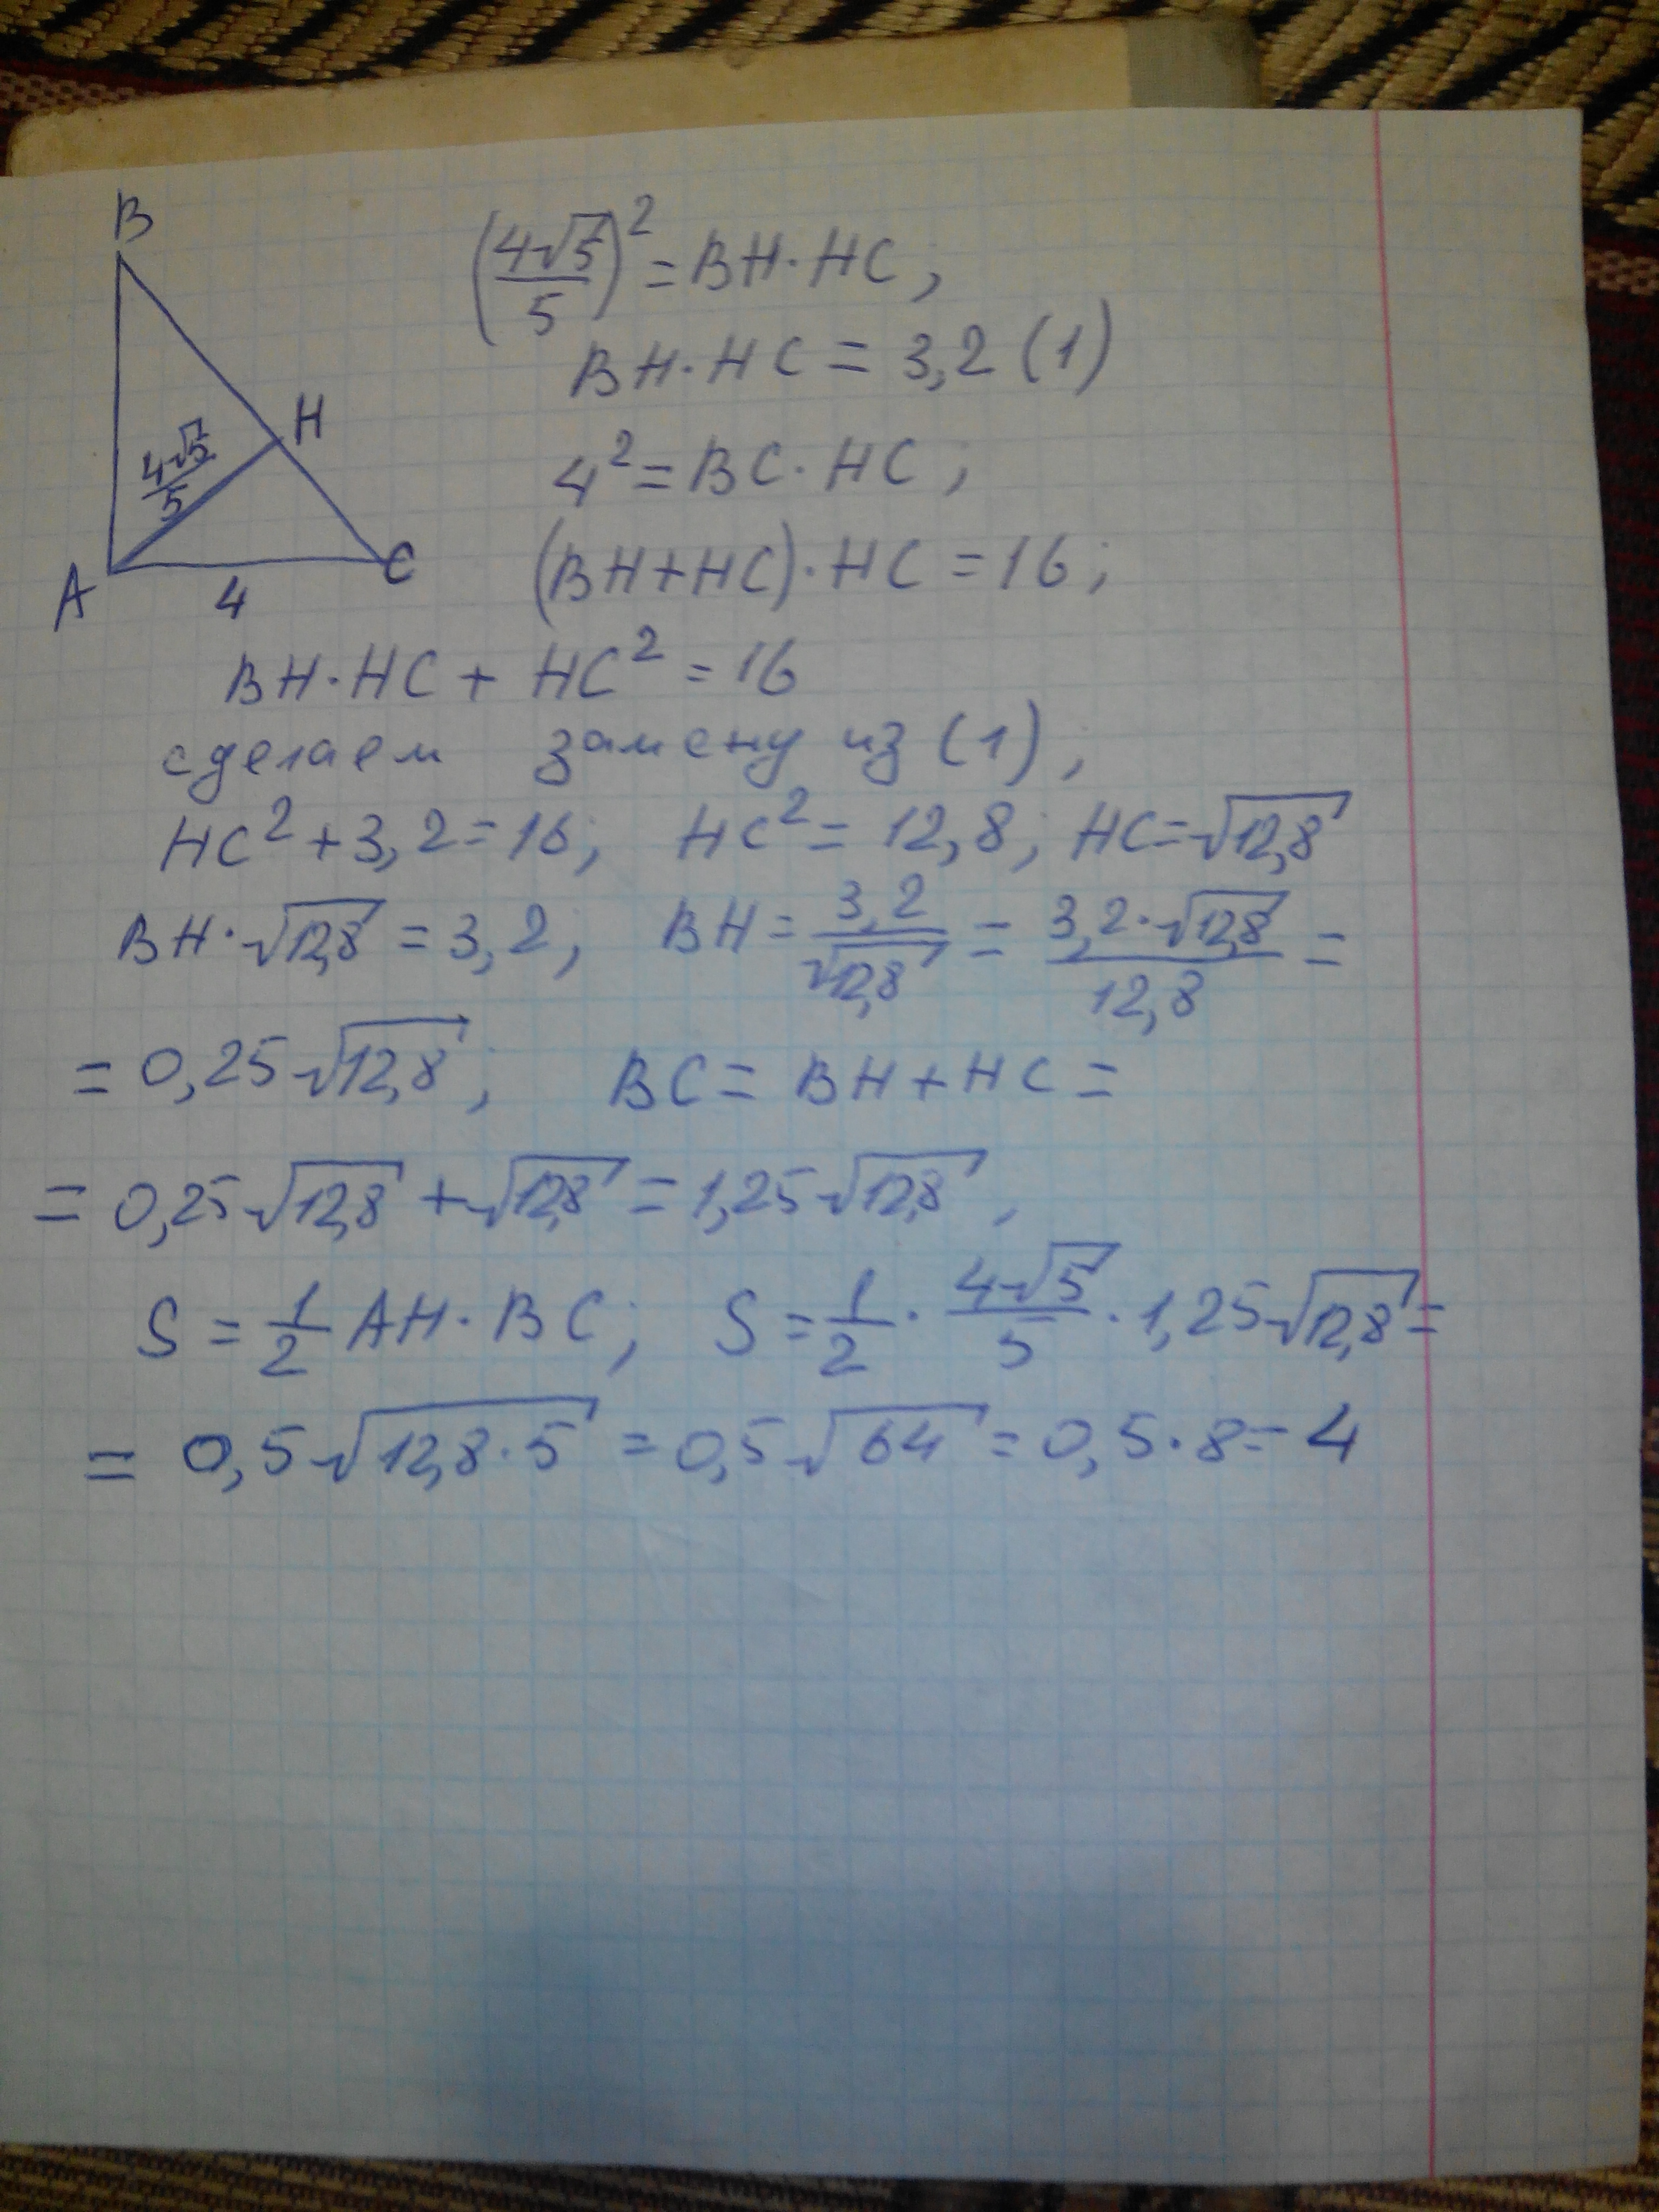 B
H
4√5/5
A
4
C
(4√5/5)² = BH·HC;
BH·HC = 3,2 (1)
4² = BC·HC;
(BH+HC)·HC = 16;
BH·HC + HC² = 16
сделаем замену из (1);
HC² + 3,2 = 16; HC² = 12,8; HC = √12,8
BH·√12,8 = 3,2; BH = 3,2/√12,8 = 3,2·√12,8/12,8 =
= 0,25√12,8; BC = BH + HC =
= 0,25√12,8 + √12,8 = 1,25√12,8,
S = 1/2 AH·BC; S = 1/2 · 4√5/5 · 1,25√12,8 =
= 0,5√12,8·5 = 0,5√64 = 0,5·8 = 4